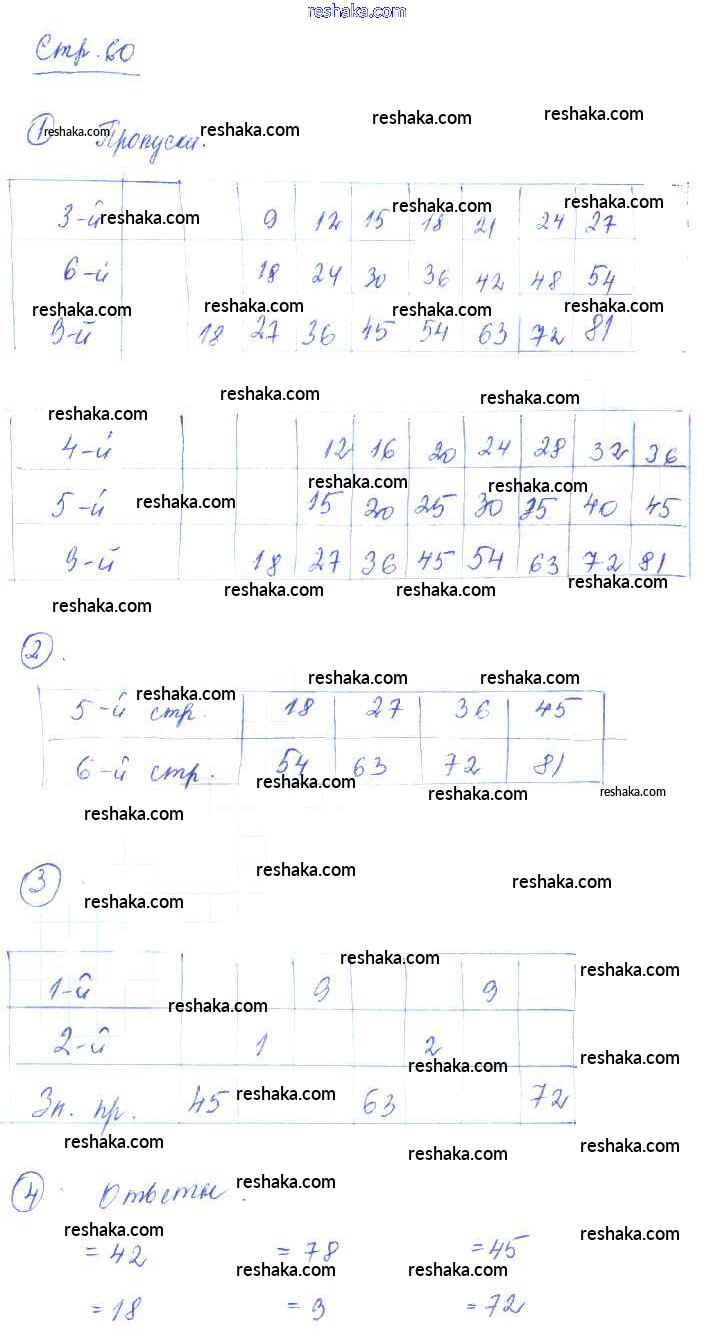 reshaka.com
Стр. 60
reshaka.com
reshaka.com
① Пропуски.
reshaka.com reshaka.com
reshaka.com
reshaka.com
3-й 9 12 15 18 21 24 27
reshaka.com reshaka.com
6-й 18 24 30 36 42 48 54
reshaka.com reshaka.com reshaka.com reshaka.com
9-й 18 27 36 45 54 63 72 81
reshaka.com reshaka.com
reshaka.com
4-й 12 16 20 24 28 32 36
reshaka.com reshaka.com
5-й 15 20 25 30 35 40 45
reshaka.com
9-й 18 27 36 45 54 63 72 81
reshaka.com reshaka.com reshaka.com
reshaka.com
② .
reshaka.com reshaka.com
reshaka.com
5-й стр. 18 27 36 45
6-й стр. 54 63 72 81
reshaka.com reshaka.com reshaka.com
reshaka.com
③
reshaka.com reshaka.com
reshaka.com
reshaka.com reshaka.com
1-й 9 9
reshaka.com
2-й 1 2
reshaka.com reshaka.com
reshaka.com
Зн. пр. 45 63 72
reshaka.com
reshaka.com reshaka.com reshaka.com
④. Ответы:
reshaka.com
reshaka.com reshaka.com
= 42 = 78 = 45
reshaka.com reshaka.com
= 18 = 9 = 72